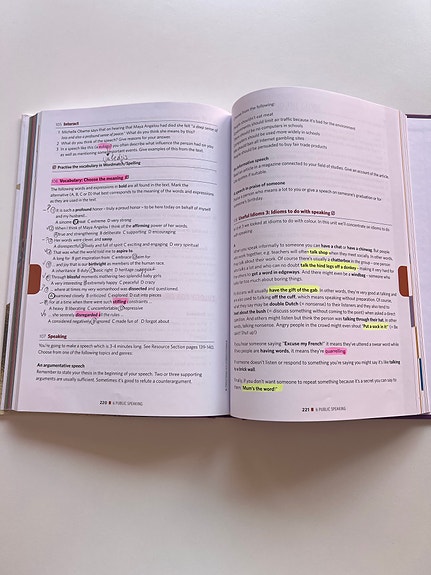 105 Interact
1 Michelle Obama says that on hearing that Maya Angelou had died she felt "a deep sense of
loss and also a profound sense of peace." What do you think she means by this?
2 What do you think of the speech? Give reasons for your answer.
3 In a speech like this (a eulogy) you often describe what influence the person had on you
as well as mentioning important events. Give examples of this from the text.
Practise the vocabulary in Wordmatch/Spelling
106 Vocabulary: Choose the meaning
The following words and expressions in bold are all found in the text. Mark the
alternative (A, B, C or D) that best corresponds to the meaning of the words and expressions
as they are used in the text.
It is such a profound honor – truly a profound honor – to be here today on behalf of myself
and my husband.
A sincere B small C extreme D very strong
When I think of Maya Angelou I think of the affirming power of her words.
A true and strengthening B deliberate C supporting D encouraging
Her words were clever, and sassy
A disrespectful B lively and full of spirit C exciting and engaging D very spiritual
That was what the world told me to aspire to.
A long for B get inspiration from C embrace D aim for
and joy that is our birthright as members of the human race.
A inheritance B duty C basic right D heritage
through blissful moments mothering two splendid baby girls
A very interesting B extremely happy C peaceful D crazy
where at times my very womanhood was dissected and questioned.
A examined closely B criticized C explored D cut into pieces
for a time when there were such stifling constraints
A heavy B liberating C uncomfortable D oppressive
she serenely disregarded all the rules
A considered negatively B ignored C made fun of D forgot about
107 Speaking
You're going to make a speech which is 3-4 minutes long. See Resource Section pages 139-140.
Choose from one of the following topics and genres:
An argumentative speech
Remember to state your thesis in the beginning of your speech. Two or three supporting
arguments are usually sufficient. Sometimes it's good to refute a counterargument.
220 6 PUBLIC SPEAKING
from the following:
shouldn't eat meat
should limit air traffic because it's bad for the environment
should be no computers in schools
should be used more widely in schools
ban all Internet gambling sites
should be persuaded to buy fair trade products
speech
article in a magazine connected to your field of studies. Give an account of the article,
it is suitable.
speech in praise of someone
who means a lot to you or give a speech on someone's graduation or for
birthday.
Useful Idioms 3: Idioms to do with speaking
looked at idioms to do with colour. In this unit we'll concentrate on idioms to do
speak informally to someone you can have a chat or have a chinwag. But people
work together, e.g. butchers will often talk shop when they meet socially. In other words,
talk about their work. Of course there's usually a chatterbox in the group – one person
talks a lot and who can no doubt talk the hind legs off a donkey – making it very hard for
to get a word in edgeways. And there might even be a windbag – someone who
too much about boring things.
will usually have the gift of the gab. In other words, they're very good at talking and
used to talking off the cuff, which means speaking without preparation. Of course,
they may be double Dutch (= nonsense) to the listener and they may also tend to
beat about the bush (= discuss something without coming to the point) when asked a direct
question. And others might listen but think the person was talking through their hat, in other
words, talking nonsense. Angry people in the crowd might even shout "Put a sock in it!" (= Be
quiet! Shut up!)
you hear someone saying "Excuse my French!" it means they've uttered a swear word while
people are having words, it means they're quarrelling.
someone doesn't listen or respond to something you're saying you might say it's like talking
to a brick wall.
Finally, if you don't want someone to repeat something because it's a secret you can say to
them, "Mum's the word!"
221 6 PUBLIC SPEAKING